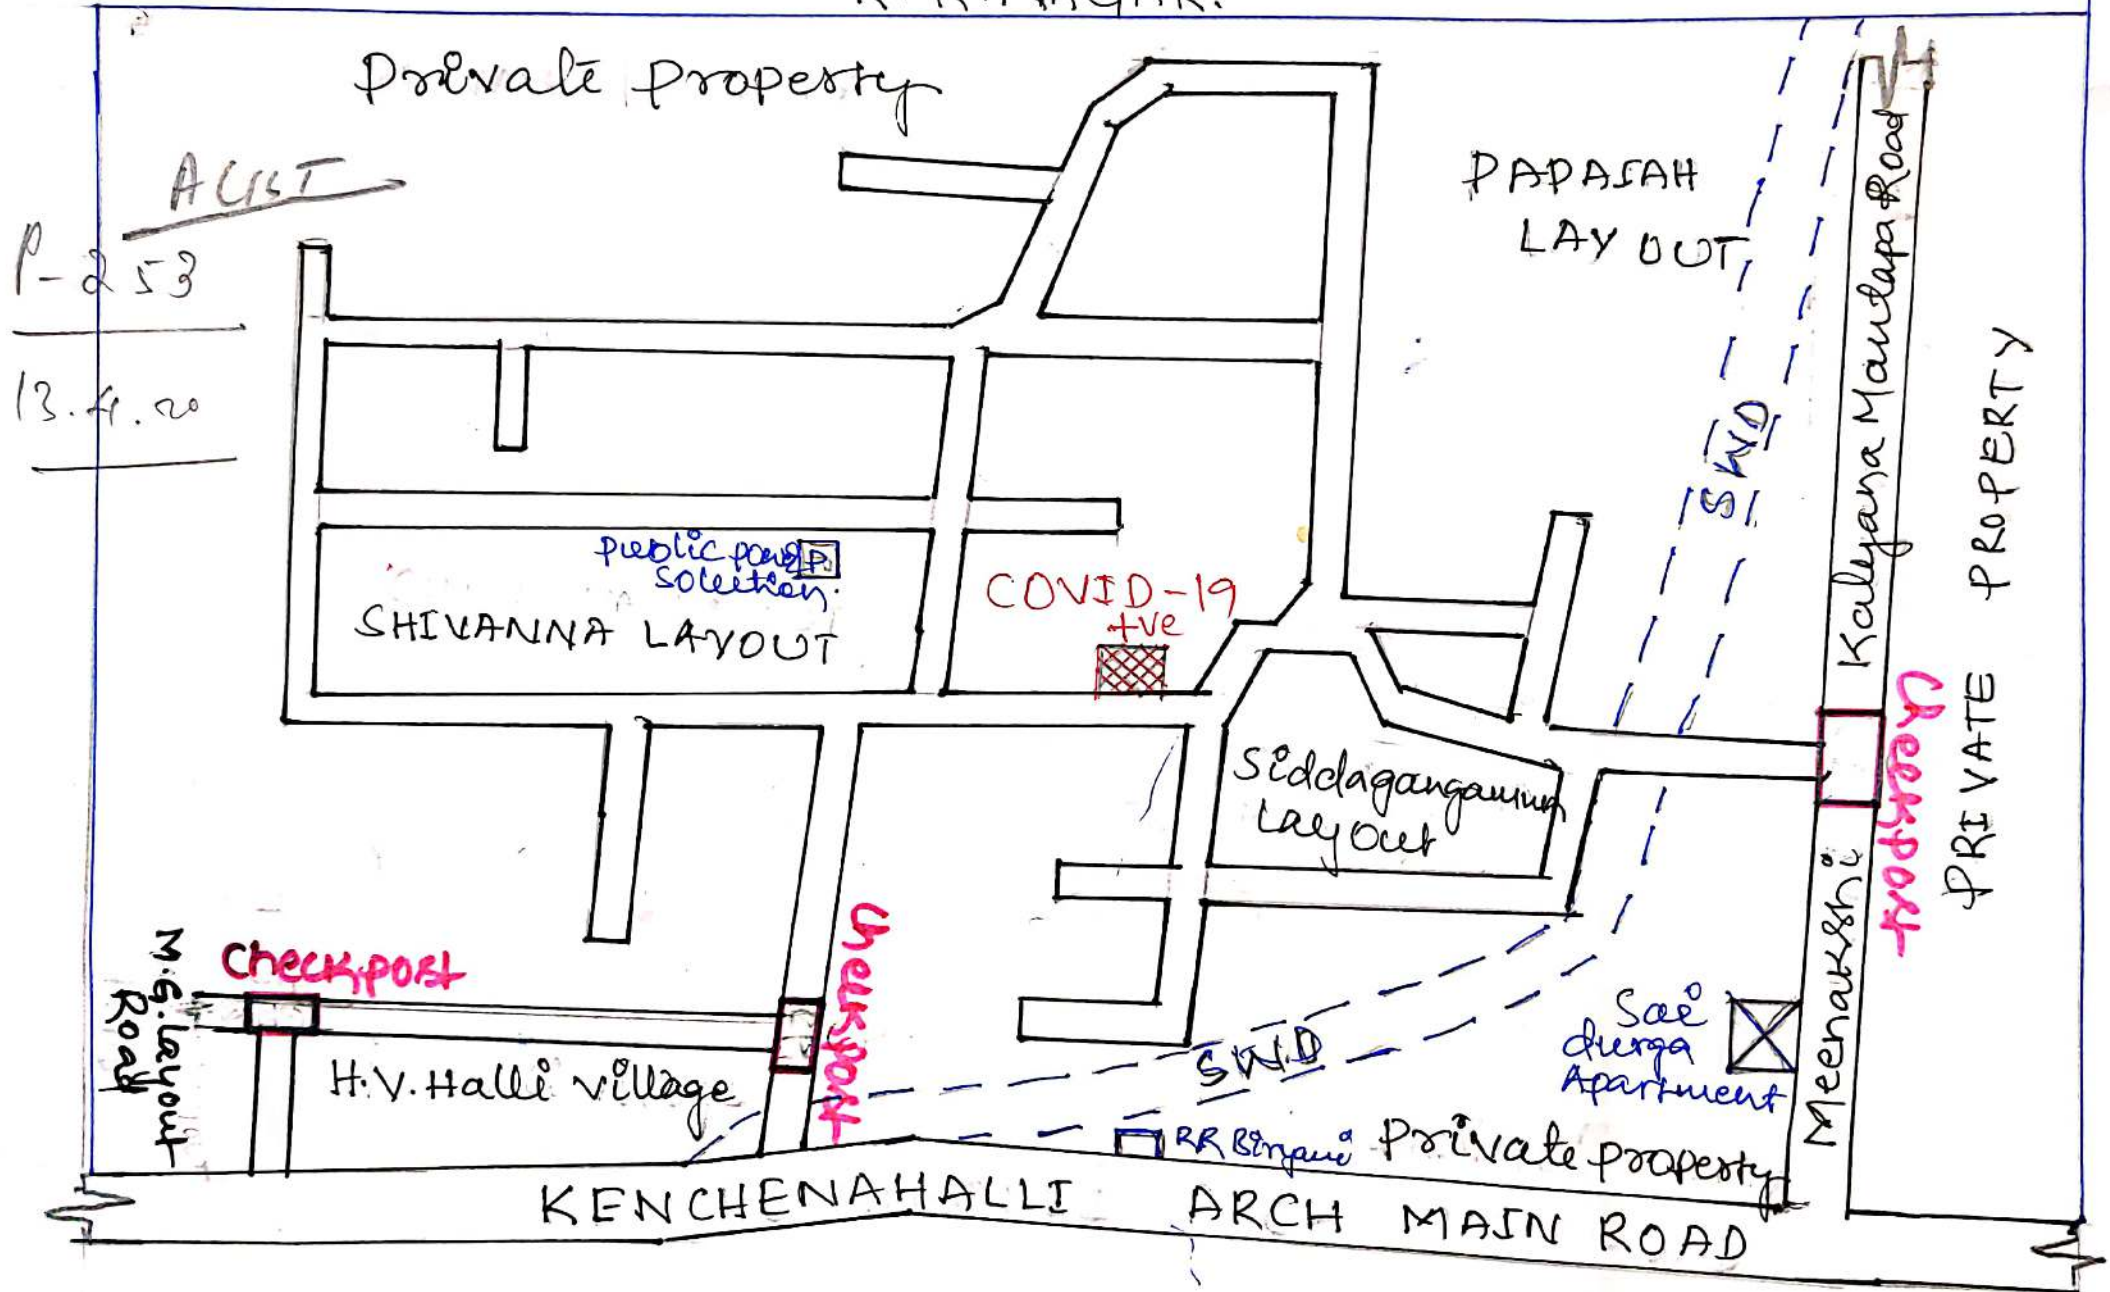 R R NAGAR.
Private property
P-253
13.4.20
PAPAIAH
LAY OUT
Kalyana Mantapa Road
PRIVATE PROPERTY
SWD
public
solution.
P.
SHIVANNA LAYOUT
COVID-19
+ve
Checkpost
Siddagangamma
Layout
Checkpost
Checkpost
M.G. Layout
Road
H.V. Halli village
SW.D
Sai
durga
Apartment
Meenakshi
RR Biryani
Private property
KENCHENAHALLI ARCH MAIN ROAD